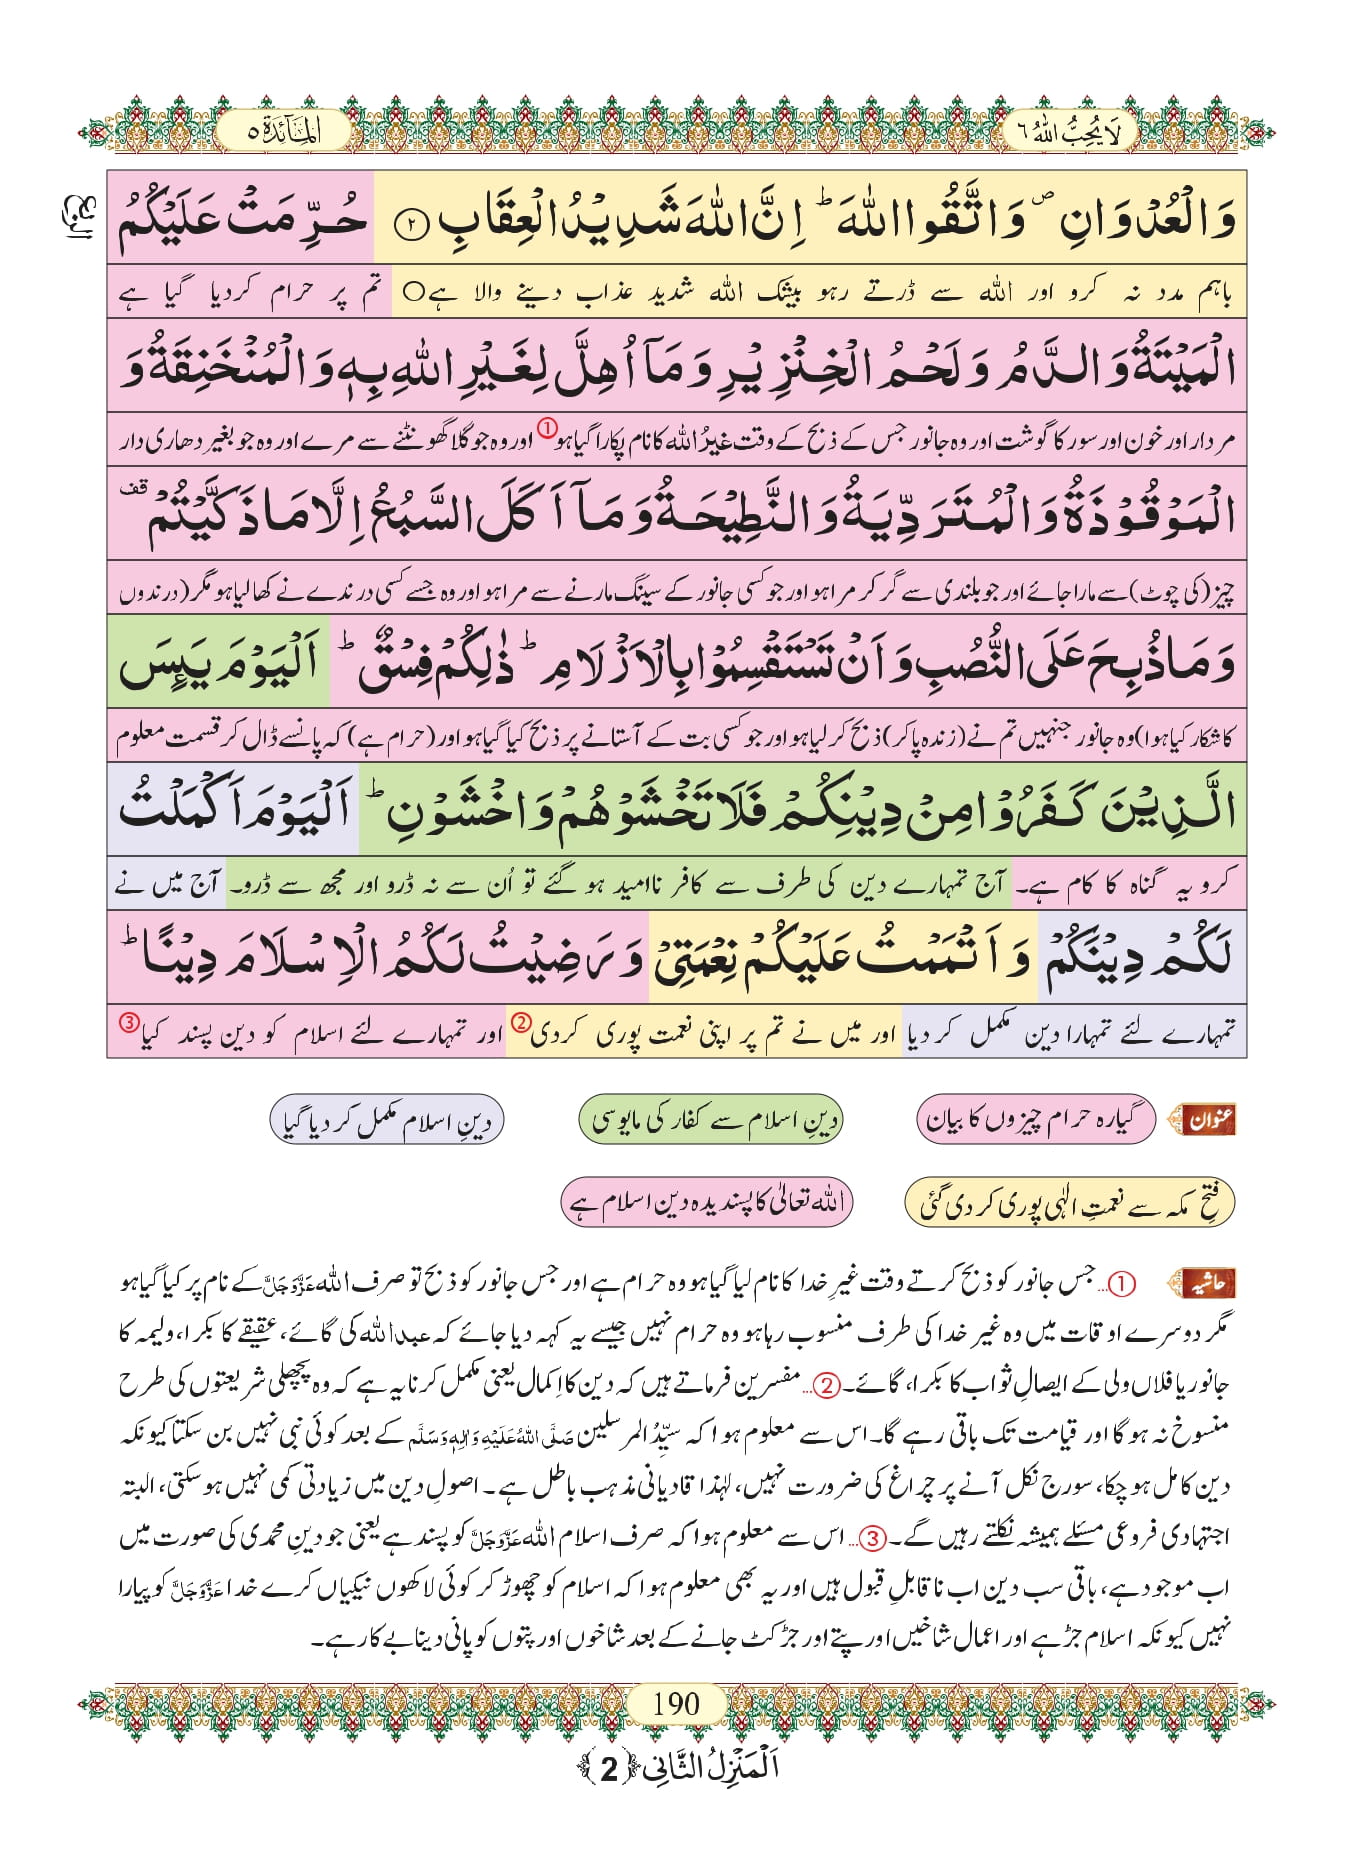 لَا یُحِبُّ اللّٰهُ ٦
الْمَآئِدَة ٥
وَالْعُدْوَانِ ۪ وَاتَّقُوا اللّٰهَ ؕ اِنَّ اللّٰهَ شَدِیْدُ الْعِقَابِ ﴿۲﴾ حُرِّمَتْ عَلَیْكُمُ
باہم مدد نہ کرو اور اللہ سے ڈرتے رہو بیشک اللہ شدید عذاب دینے والا ہے○ تم پر حرام کردیا گیا ہے
الْمَیْتَةُ وَالدَّمُ وَلَحْمُ الْخِنْزِیْرِ وَمَاۤ اُهِلَّ لِغَیْرِ اللّٰهِ بِهٖ وَالْمُنْخَنِقَةُ وَ
مردار اور خون اور سور کا گوشت اور وہ جانور جس کے ذبح کے وقت غیرُ اللہ کا نام پکارا گیا ہو① اور وہ جو گلا گھونٹنے سے مرے اور وہ جو بغیر دھاری دار
الْمَوْقُوْذَةُ وَالْمُتَرَدِّیَةُ وَالنَّطِیْحَةُ وَمَاۤ اَكَلَ السَّبُعُ اِلَّا مَا ذَكَّیْتُمْ قف
چیز (کی چوٹ) سے مارا جائے اور جو بلندی سے گر کر مرا ہو اور جو کسی جانور کے سینگ مارنے سے مرا ہو اور وہ جسے کسی درندے نے کھالیا ہو مگر (درندوں
وَمَا ذُبِحَ عَلَی النُّصُبِ وَاَنْ تَسْتَقْسِمُوْا بِالْاَزْلَامِ ؕ ذٰلِكُمْ فِسْقٌ ؕ اَلْیَوْمَ یَىِٕسَ
کا شکار کیا ہوا) وہ جانور جنہیں تم نے (زندہ پاکر) ذبح کرلیا ہو اور جو کسی بت کے آستانے پر ذبح کیا گیا ہو اور (حرام ہے) کہ پانسے ڈال کر قسمت معلوم
الَّذِیْنَ كَفَرُوْا مِنْ دِیْنِكُمْ فَلَا تَخْشَوْهُمْ وَاخْشَوْنِ ؕ اَلْیَوْمَ اَكْمَلْتُ
کرو یہ گناہ کا کام ہے۔ آج تمہارے دین کی طرف سے کافر ناامید ہو گئے تو اُن سے نہ ڈرو اور مجھ سے ڈرو۔ آج میں نے
لَكُمْ دِیْنَكُمْ وَاَتْمَمْتُ عَلَیْكُمْ نِعْمَتِیْ وَرَضِیْتُ لَكُمُ الْاِسْلَامَ دِیْنًا ؕ
تمہارے لئے تمہارا دین مکمل کر دیا اور میں نے تم پر اپنی نعمت پوری کردی② اور تمہارے لئے اسلام کو دین پسند کیا③
عنوان گیارہ حرام چیزوں کا بیان دینِ اسلام سے کفار کی مایوسی دینِ اسلام مکمل کر دیا گیا
فتحِ مکہ سے نعمتِ الٰہی پوری کر دی گئی اللہ تعالیٰ کا پسندیدہ دین اسلام ہے
حاشیہ ①... جس جانور کو ذبح کرتے وقت غیرِ خدا کا نام لیا گیا ہو وہ حرام ہے اور جس جانور کو ذبح تو صرف اللہ عَزَّوَجَلَّ کے نام پر کیا گیا ہو
مگر دوسرے اوقات میں وہ غیر خدا کی طرف منسوب رہا ہو وہ حرام نہیں جیسے یہ کہہ دیا جائے کہ عبد اللہ کی گائے، عقیقے کا بکرا، ولیمہ کا
جانور یا فلاں ولی کے ایصالِ ثواب کا بکرا، گائے۔ ②... مفسرین فرماتے ہیں کہ دین کا اِکمال یعنی مکمل کرنا یہ ہے کہ وہ پچھلی شریعتوں کی طرح
منسوخ نہ ہوگا اور قیامت تک باقی رہے گا۔ اس سے معلوم ہوا کہ سیّدُ المرسلین صَلَّی اللہُ عَلَیْہِ وَاٰلِہٖ وَسَلَّم کے بعد کوئی نبی نہیں بن سکتا کیونکہ
دین کامل ہوچکا، سورج نکل آنے پر چراغ کی ضرورت نہیں، لہٰذا قادیانی مذہب باطل ہے۔ اصولِ دین میں زیادتی کمی نہیں ہوسکتی، البتہ
اجتہادی فروعی مسئلے ہمیشہ نکلتے رہیں گے۔ ③... اس سے معلوم ہوا کہ صرف اسلام اللہ عَزَّوَجَلَّ کو پسند ہے یعنی جو دینِ محمدی کی صورت میں
اب موجود ہے، باقی سب دین اب ناقابلِ قبول ہیں اور یہ بھی معلوم ہوا کہ اسلام کو چھوڑ کر کوئی لاکھوں نیکیاں کرے خدا عَزَّوَجَلَّ کو پیارا
نہیں کیونکہ اسلام جڑ ہے اور اعمال شاخیں اور پتے اور جڑ کٹ جانے کے بعد شاخوں اور پتوں کو پانی دینا بے کار ہے۔
190
اَلْمَنْزِلُ الثَّانِی ﴿2﴾